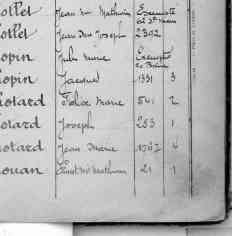 ollet Jean Marie Mathurin Exempté
ollet Jean Joseph 2392
opin Jules Marie Exempté
opin Jacques 1331 3
otard Félix Marie 541 2
otard Joseph 253 1
otard Jean Marie 1767 4
ouan Mathurin 21 1